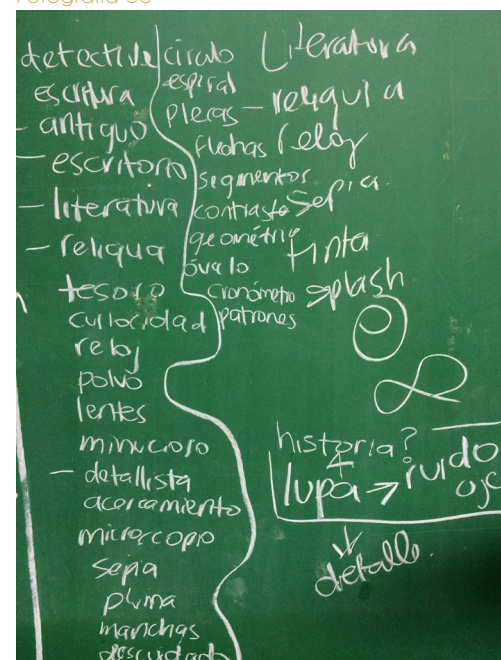 detective
escritura
- antiguo
- escritorio
- literatura
- reliqua
tesoro
curiocidad
reloj
polvo
lentes
minucioso
- detallista
acercamiento
microscopio
sepia
pluma
manchas
descuidado
circulo
espiral
plecas
flechas
segmentos
contraste
geométric
óvalo
cronómetro
patrones
Literatura
- reliquia
reloj
sepia.
tinta
splash
historia?
lupa → ruido
ojo
detalle.